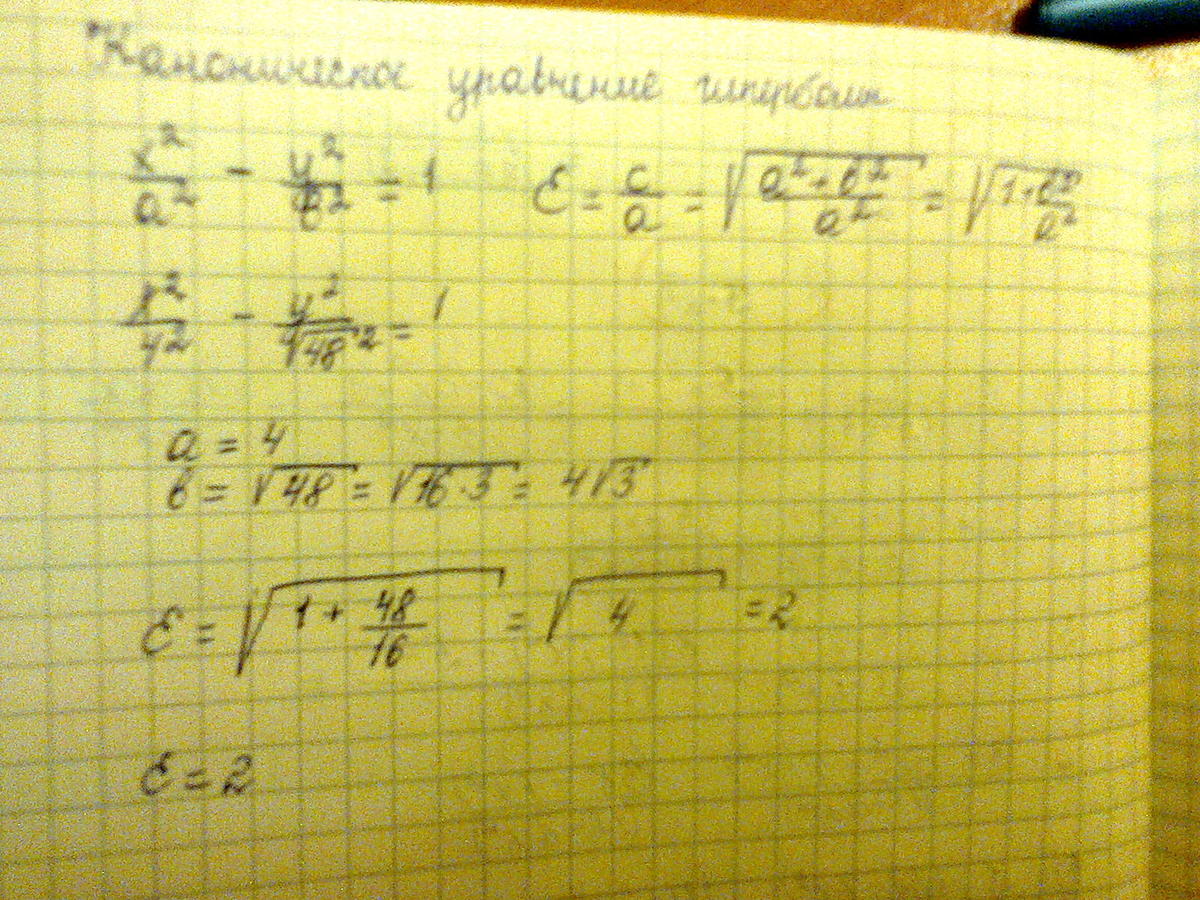 Каноническое уравнение гиперболы
x²/a² - y²/b² = 1   ℰ = c/a = √((a²+b²)/a²) = √(1+b²/a²)
x²/4² - y²/√48² = 1
a = 4
b = √48 = √16·3 = 4√3
ℰ = √(1 + 48/16) = √4 = 2
ℰ = 2